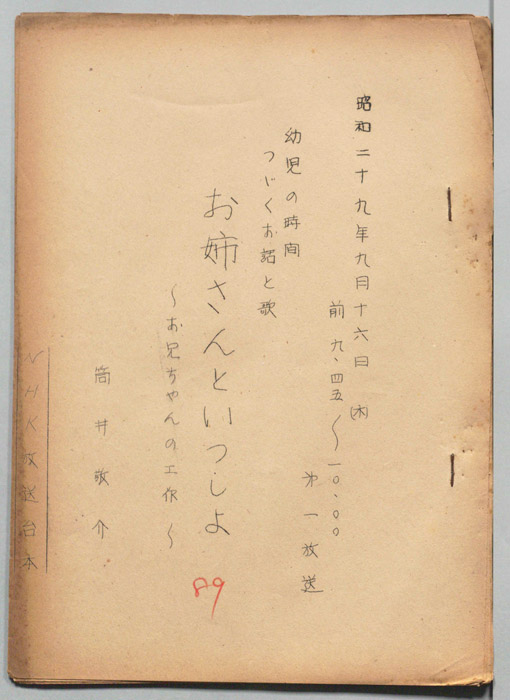 昭和二十九年九月十六日(木)
前九、四五〜一〇、〇〇
第一放送
幼児の時間
つゞくお話と歌
お姉さんといつしよ
〜お兄ちゃんの工作〜
89
筒井敬介
NHK放送台本